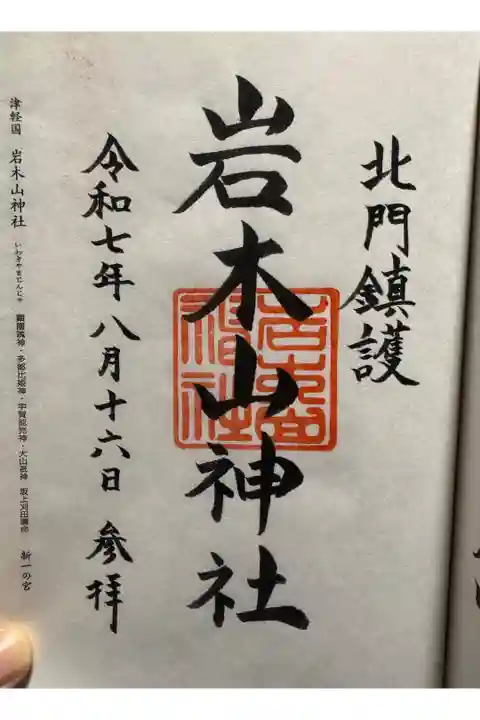 北門鎮護
岩木山神社
令和七年八月十六日 参拝
津軽国 岩木山神社 いわきやまじんじゃ 顕國魂神・多都比姫神・宇賀能売神・大山祇神 坂上刈田麿命 新一の宮